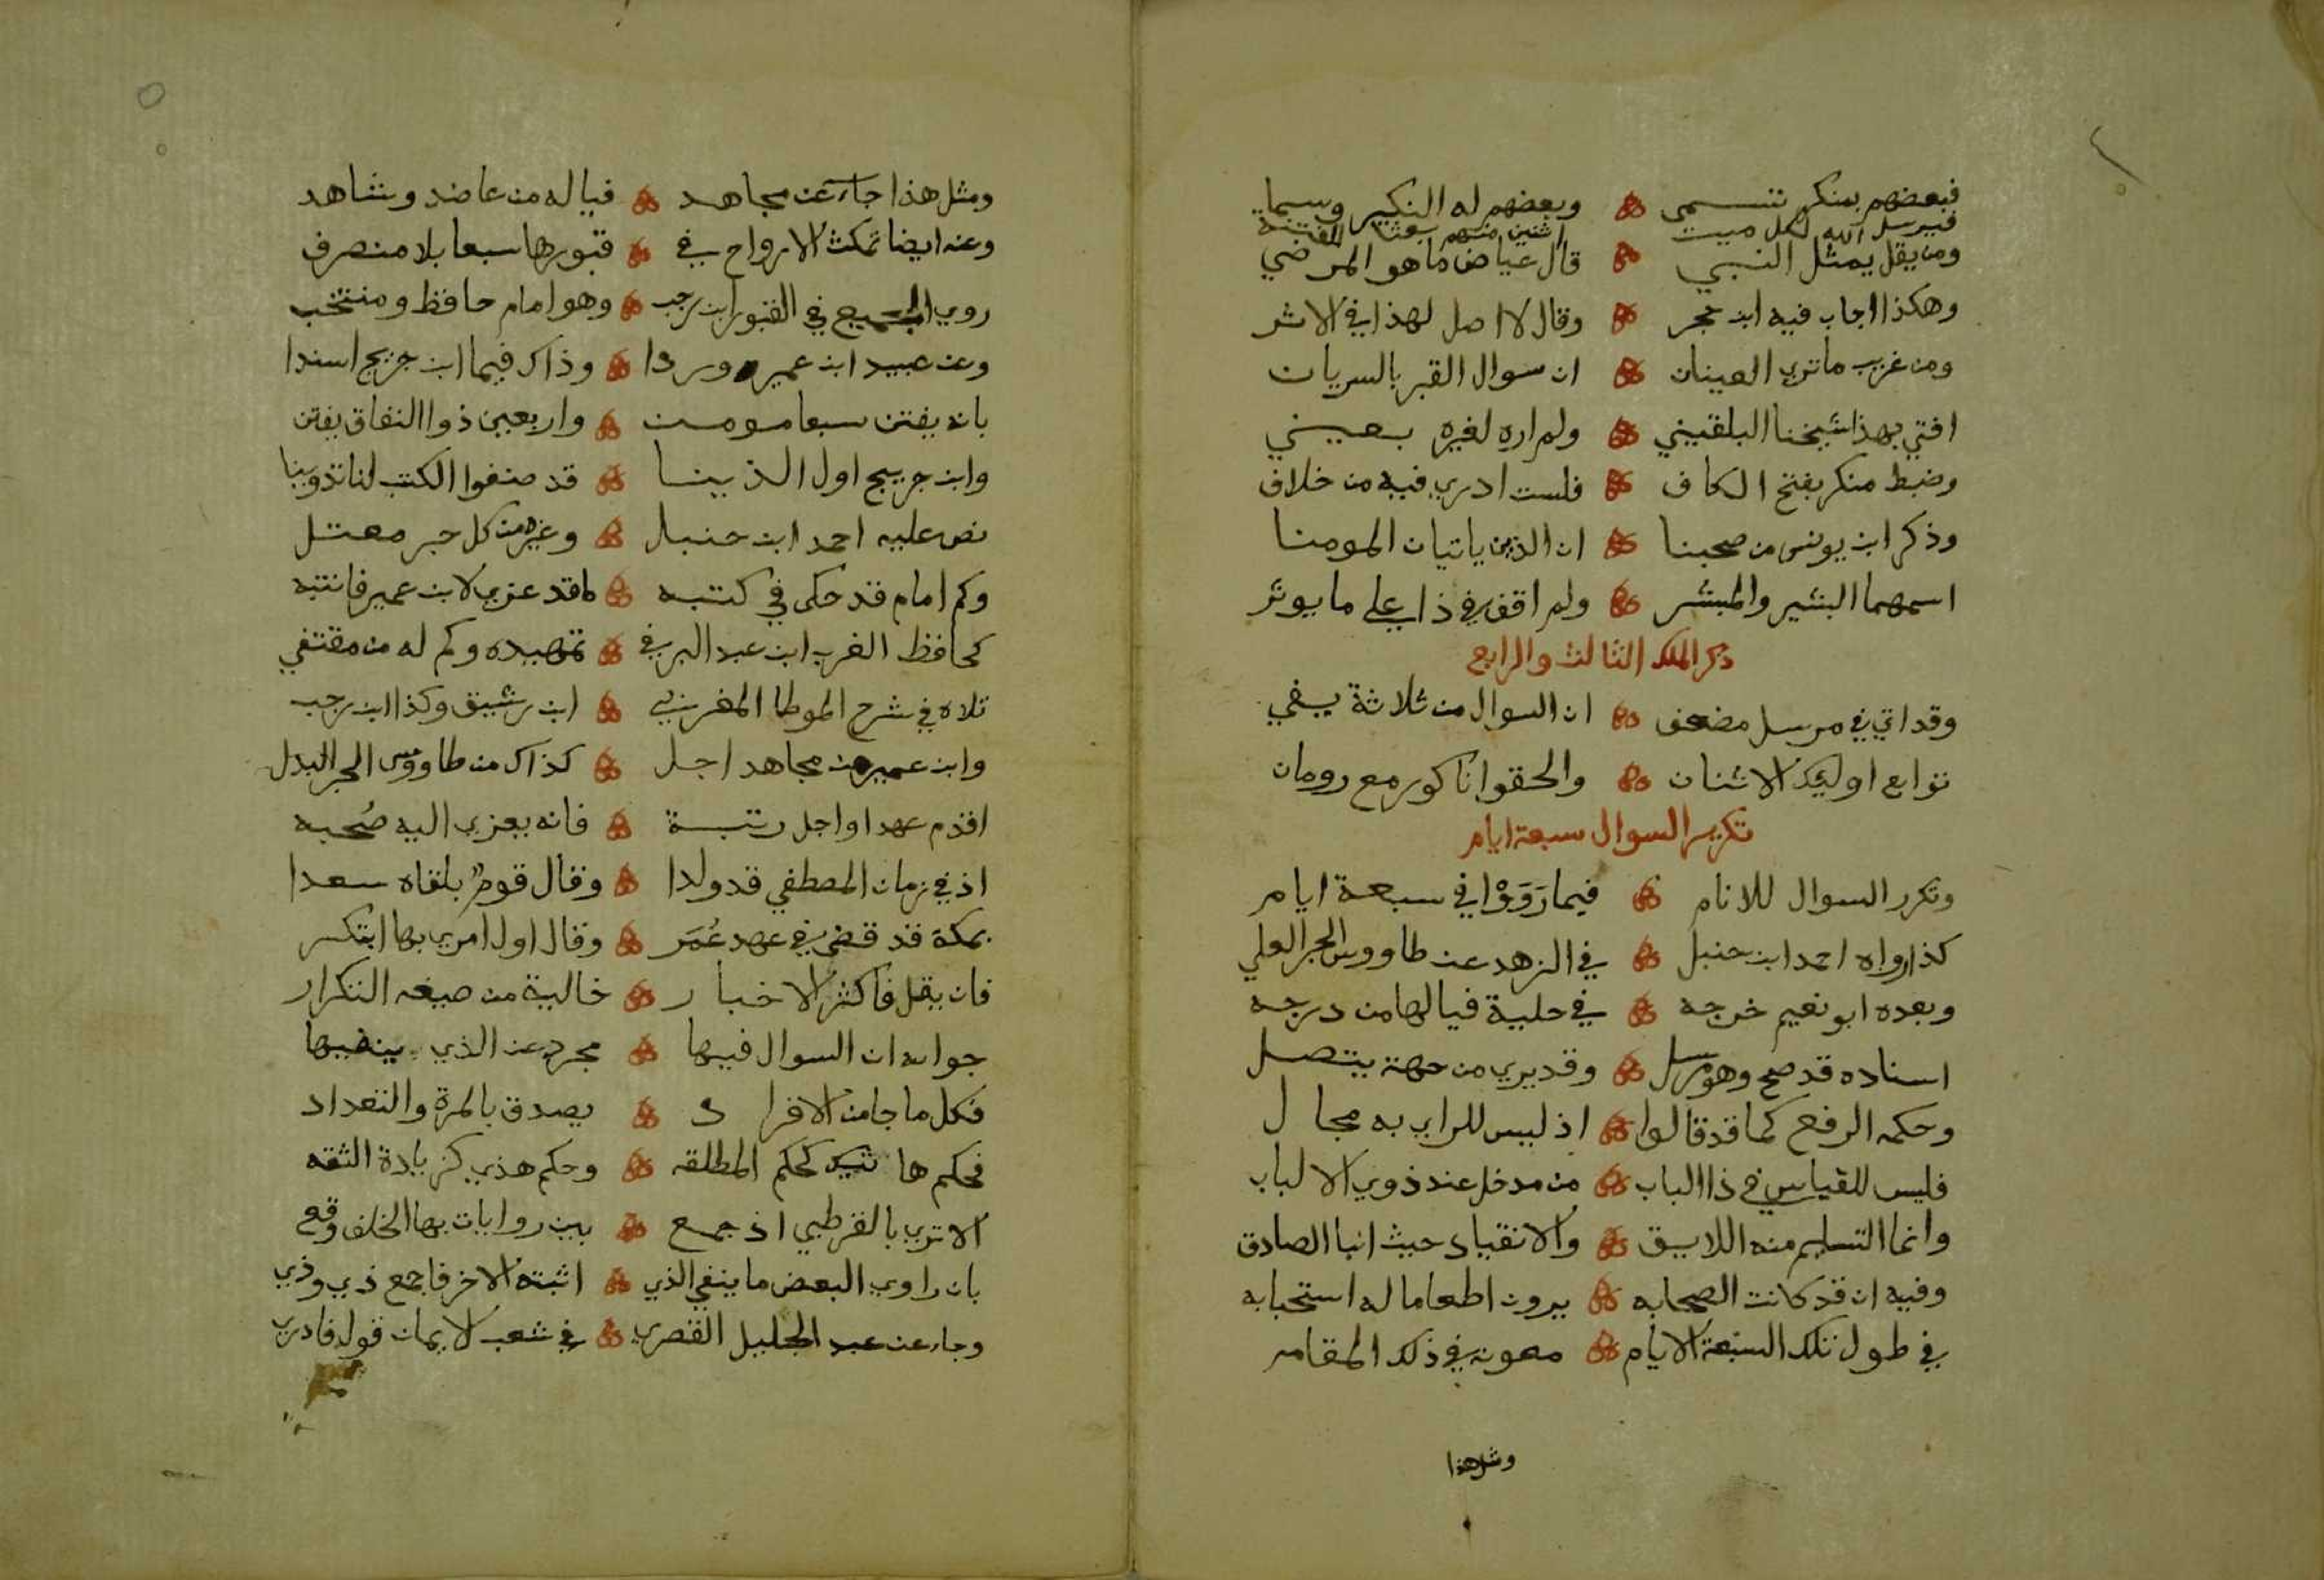 فبعضهم بمنكر تسمى وبعضهم له النكير وسما
فيرسل الله لكل ميت اثنين منهم بعثا للفتنة
ومن يقل يمثل النبي قال عياض ما هو المرضي
وهكذا اجاب فيه ابن حجر وقال لا اصل لهذا في الاثر
ومن غريب ما تري العينان ان سوال القبر بالسريان
افتي بهذا شيخنا البلقيني ولم اره لغيره بعيني
وضبط منكر بفتح الكاف فلست ادري فيه من خلاف
وذكر ابن يونس من صحبنا ان الذين ياتيان المومنا
اسمهما البشير والمبشر ولم اقف في ذا علي ما يوثر
ذكر الملك الثالث والرابع
وقد اتي في مرسل مضعف ان السوال من ثلاثة يفي
توابع اوليك الاثنان والحقوا ناكور مع رومان
تكرير السوال سبعة ايام
وتكرر السوال للانام فيما رَوَوْا في سبعة ايام
كذا رواه احمد ابن حنبل في الزهد عن طاووس الحبر العلي
وبعده ابو نعيم خرجه في حلية فيا لها من درجه
اسناده قد صح وهو مرسل وقد يري من جهة يتصل
وحكمه الرفع كما قد قالوا اذ ليس للراي به مجال
فليس للقياس في ذا الباب من مدخل عند ذوي الالباب
وانما التسليم منه اللايق والانقياد حيث انبا الصادق
وفيه ان قد كانت الصحابه يرون اطعاما له استحبابه
في طول تلك السبعة الايام معونة في ذلك المقام
ومثل هذا
ومثل هذا جاء عن مجاهد فيا له من عاضد وشاهد
وعنه ايضا تمكث الارواح في قبورها سبعا بلا منصرف
روي الجميع في القبور ابن رجب وهو امام حافظ ومنتخب
وعن عبيد ابن عمير وردا وذاك فيما ابن جريج اسندا
بانه يفتن سبعا مومن واربعين ذوا النفاق يفتن
وابن جريج اول الذينا قد صنفوا الكتب لنا تدوينا
نص عليه احمد ابن حنبل وغيره من كل حبر معتل
وكم امام قد حكى في كتبه ما قد عزي لابن عمير فانتبه
كحافظ الغرب ابن عبد البر في تمهيده وكم له من مقتفي
تلاه في شرح الموطا المغربي ابن رشيق وكذا ابن رجب
وابن عمير من مجاهد اجل كذاك من طاووس الحبر البدل
اقدم عهدا واجل رتبة فانه يعزي اليه صُحبه
اذ في زمان المصطفي قد ولدا وقال قوم بلقاه سعدا
بمكة قد قضى في عهد عُمَر وقال اول امري بها ابتكر
فان يقل فاكثر الاخبار خالية من صيغه التكرار
جوابه ان السوال فيها مجرد عن الذي ينفيها
فكل ما جا من الافراد يصدق بالمرة والتعداد
فحكم هاتيك كحكم المطلقه وحكم هذي كزيادة الثقه
الا تري بالقرطبي اذ جمع بين روايات بها الخلف وقع
بان راوي البعض ما ينفي الذي اثبته الاخر فاجمع ذي وذي
وجاء عن عبد الجليل القصري في شعب الايمان قول فادري